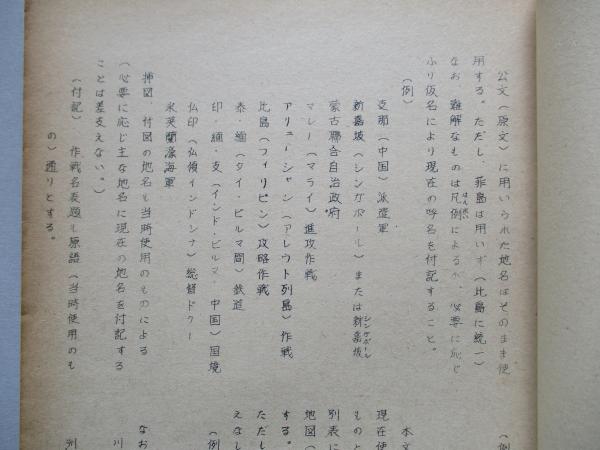 公文（原文）に用いられた地名はそのまま使
用する。ただし、菲島は用いず（比島に統一）
なお、難解なものは凡例によるか、必要に応じ
ふり仮名により現在の呼名を付記すること。
（例）
支那（中国）派遣軍
新嘉坡（シンガポール）または新嘉坡
蒙古聯合自治政府
マレー（マライ）進攻作戦
アリューシャン（アレウト列島）作戦
比島（フィリピン）攻略作戦
泰・緬（タイ・ビルマ間）鉄道
印・緬・支（インド・ビルマ・中国）国境
仏印（仏領インドシナ）総督ドクー
米英蘭濠海軍
挿図、付図の地名も当時使用のものによる
（必要に応じ主な地名に現在の地名を付記する
ことは差支えない。）
（付記） 作戦名表題も原語（当時使用のも
の）通りとする。
（例
本文
現在使
ものと
別表に
地図（
する。
ただし
えなし
（例
なお
川
列